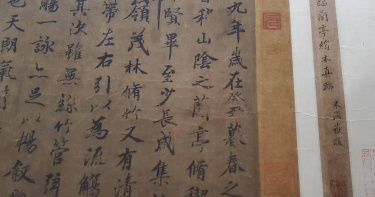 臨蘭亭絹本真跡
米海岳跋
九年歲在癸丑暮春之
稽山陰之蘭亭脩禊
賢畢至少長咸集
嶺茂林脩竹又有清
帶左右引以為流觴
其次雖無絲竹管弦
觴一詠亦足以暢敘
也天朗氣